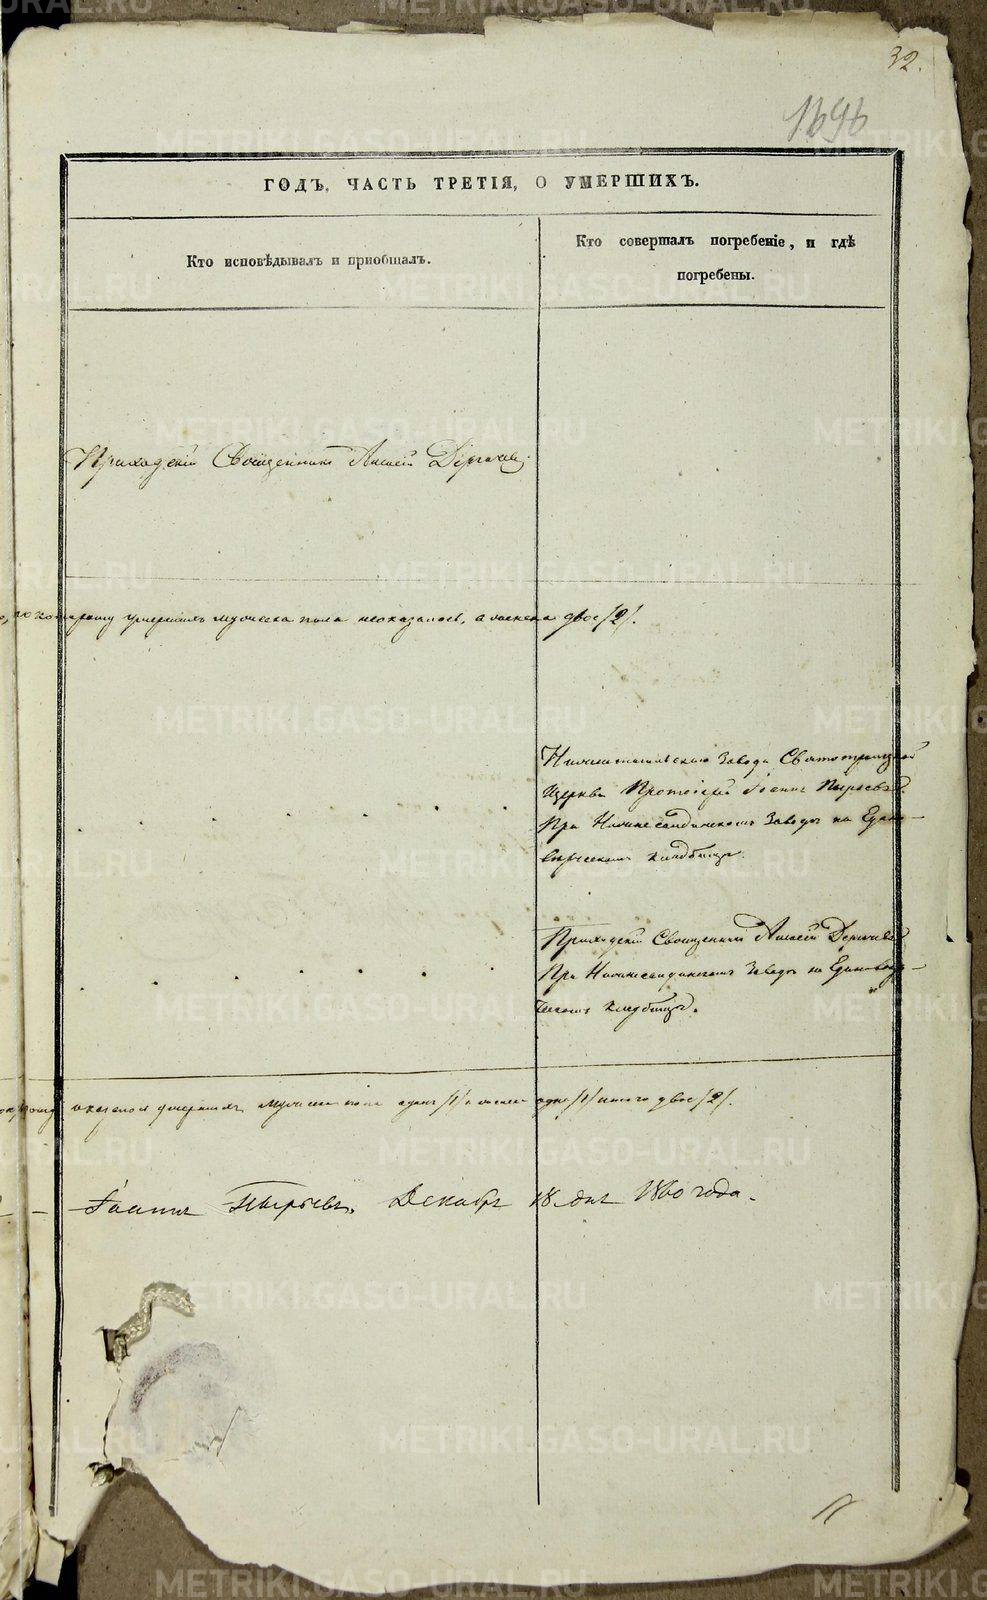 32.
1696
ГОДЪ, ЧАСТЬ ТРЕТІЯ, О УМЕРШИХЪ.
Кто исповѣдывалъ и пріобщалъ.
Кто совершалъ погребеніе, и гдѣ
погребены.
Приходскій Священникъ Алексій Дерягинъ
умершихъ мужеска пола неоказалось, а женска двое /2/.
Завода Святотроицкой
Церкви Протоіерей Іоаннъ Пырьевъ
При Нижнесалдинскомъ Заводѣ на Едино-
вѣрческомъ кладбищѣ.
Приходскій Священникъ
При Нижнесалдинскомъ Заводѣ на Единовѣр-
ческомъ кладбищѣ.
оказалось умершихъ мужеска пола одинъ /1/ а женска одна /1/ итого двое /2/.
Іоаннъ Пырьевъ. Декабря 18 дня 1860 года.
METRIKI.GASO-URAL.RU